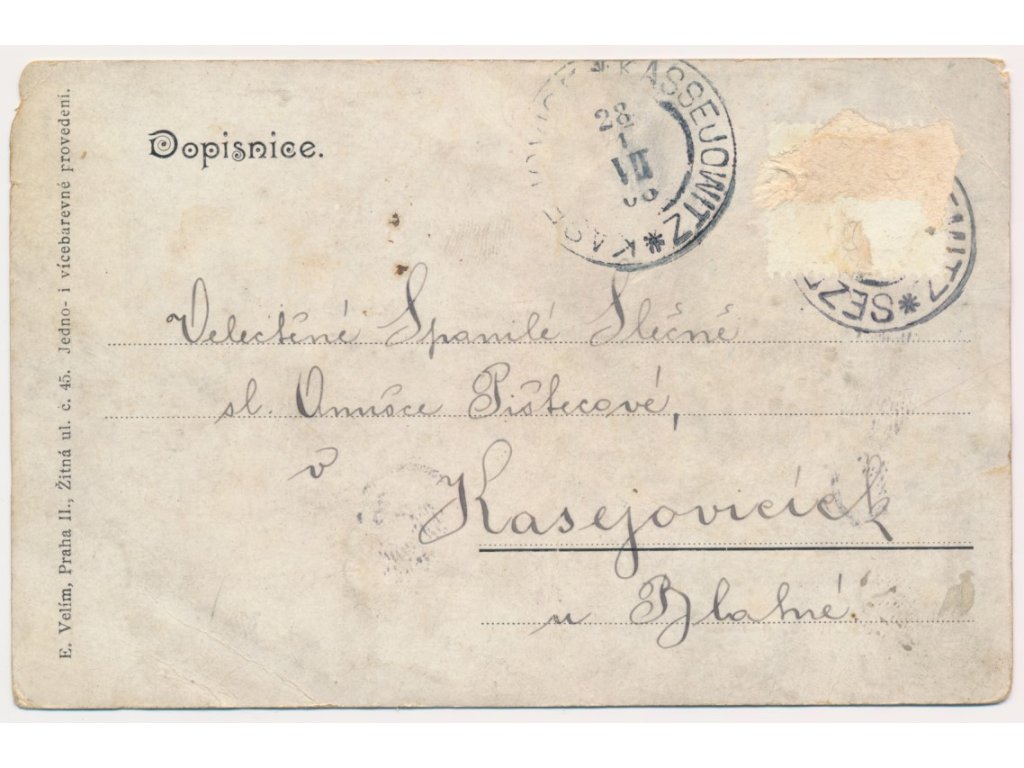 Dopisnice.
KASSEJOWITZ * KASEJOVICE *
28
VII
SEZ
MITZ *
Velectěné Spanilé Slečně
sl. Annušce Pištecové,
v
Kasejovicích
u Blatné.
E. Velím, Praha II., Žitná ul. č. 45. Jedno- i vícebarevné provedení.